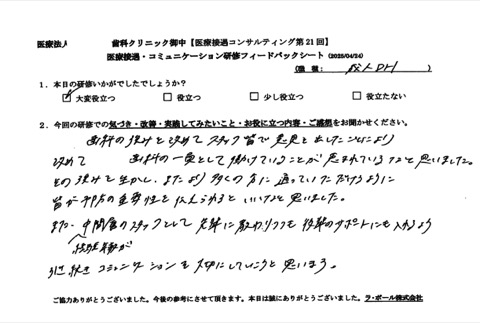 医療法人 歯科クリニック御中【医療接遇コンサルティング第21回】
医療接遇・コミュニケーション研修フィードバックシート (2025/04/24)
(職種: DH )
1．本日の研修いかがでしたでしょうか？
☑ 大変役立つ □ 役立つ □ 少し役立つ □ 役立たない
2．今回の研修での気づき・改善・実践してみたいこと・お役に立つ内容・ご感想をお聞かせください。
歯科の強みを改めてスタッフ皆で意見を出したことにより
改めて 歯科の一員として働けていることが恵まれているなと思いました。
その強みを生かし、またより多くの方に通っていただけるように
皆が予防の重要性を伝えられるといいなと思いました。
また、中間層のスタッフとして先輩に教わりつつも後輩のサポートにも入れるよう
引き続きコミュニケーションを大切にしていこうと思います。
ご協力ありがとうございました。今後の参考にさせて頂きます。本日は誠にありがとうございました。ラ・ポール株式会社